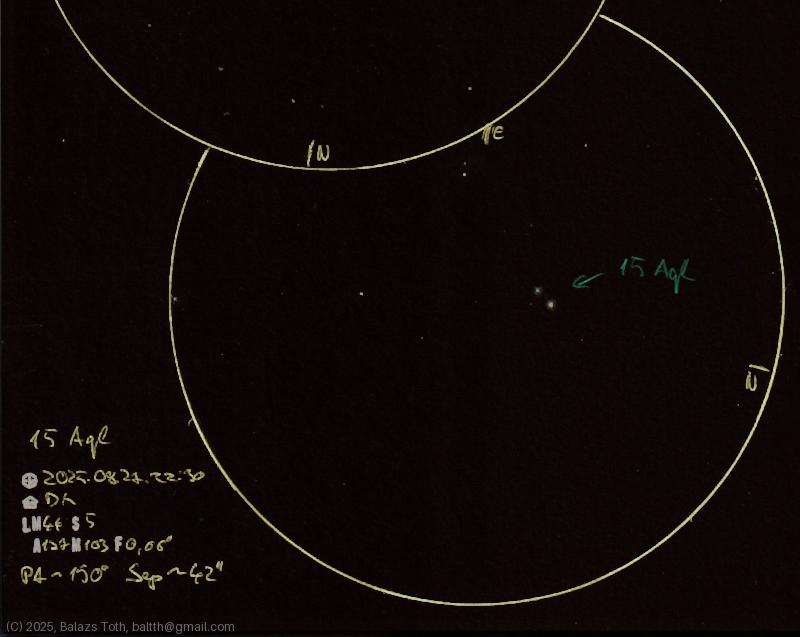 N
E
15 Agl
N
15 Agl
2025.08.27.22:30
LM4.4 S5
A127 M103 F0,66°
PA~150° Sep~42"
(C) 2025, Balazs Toth, baltth@gmail.com